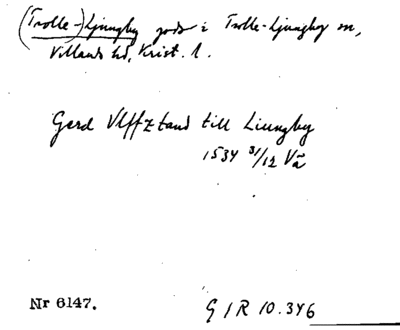 (Trolle-)Ljungby gods i Trolle-Ljungby sn,
Villands hd, Krist. l.
Gerd Vlffztand till Liungby
1534 31/12 Vä
Nr 6147.
G I R 10.346